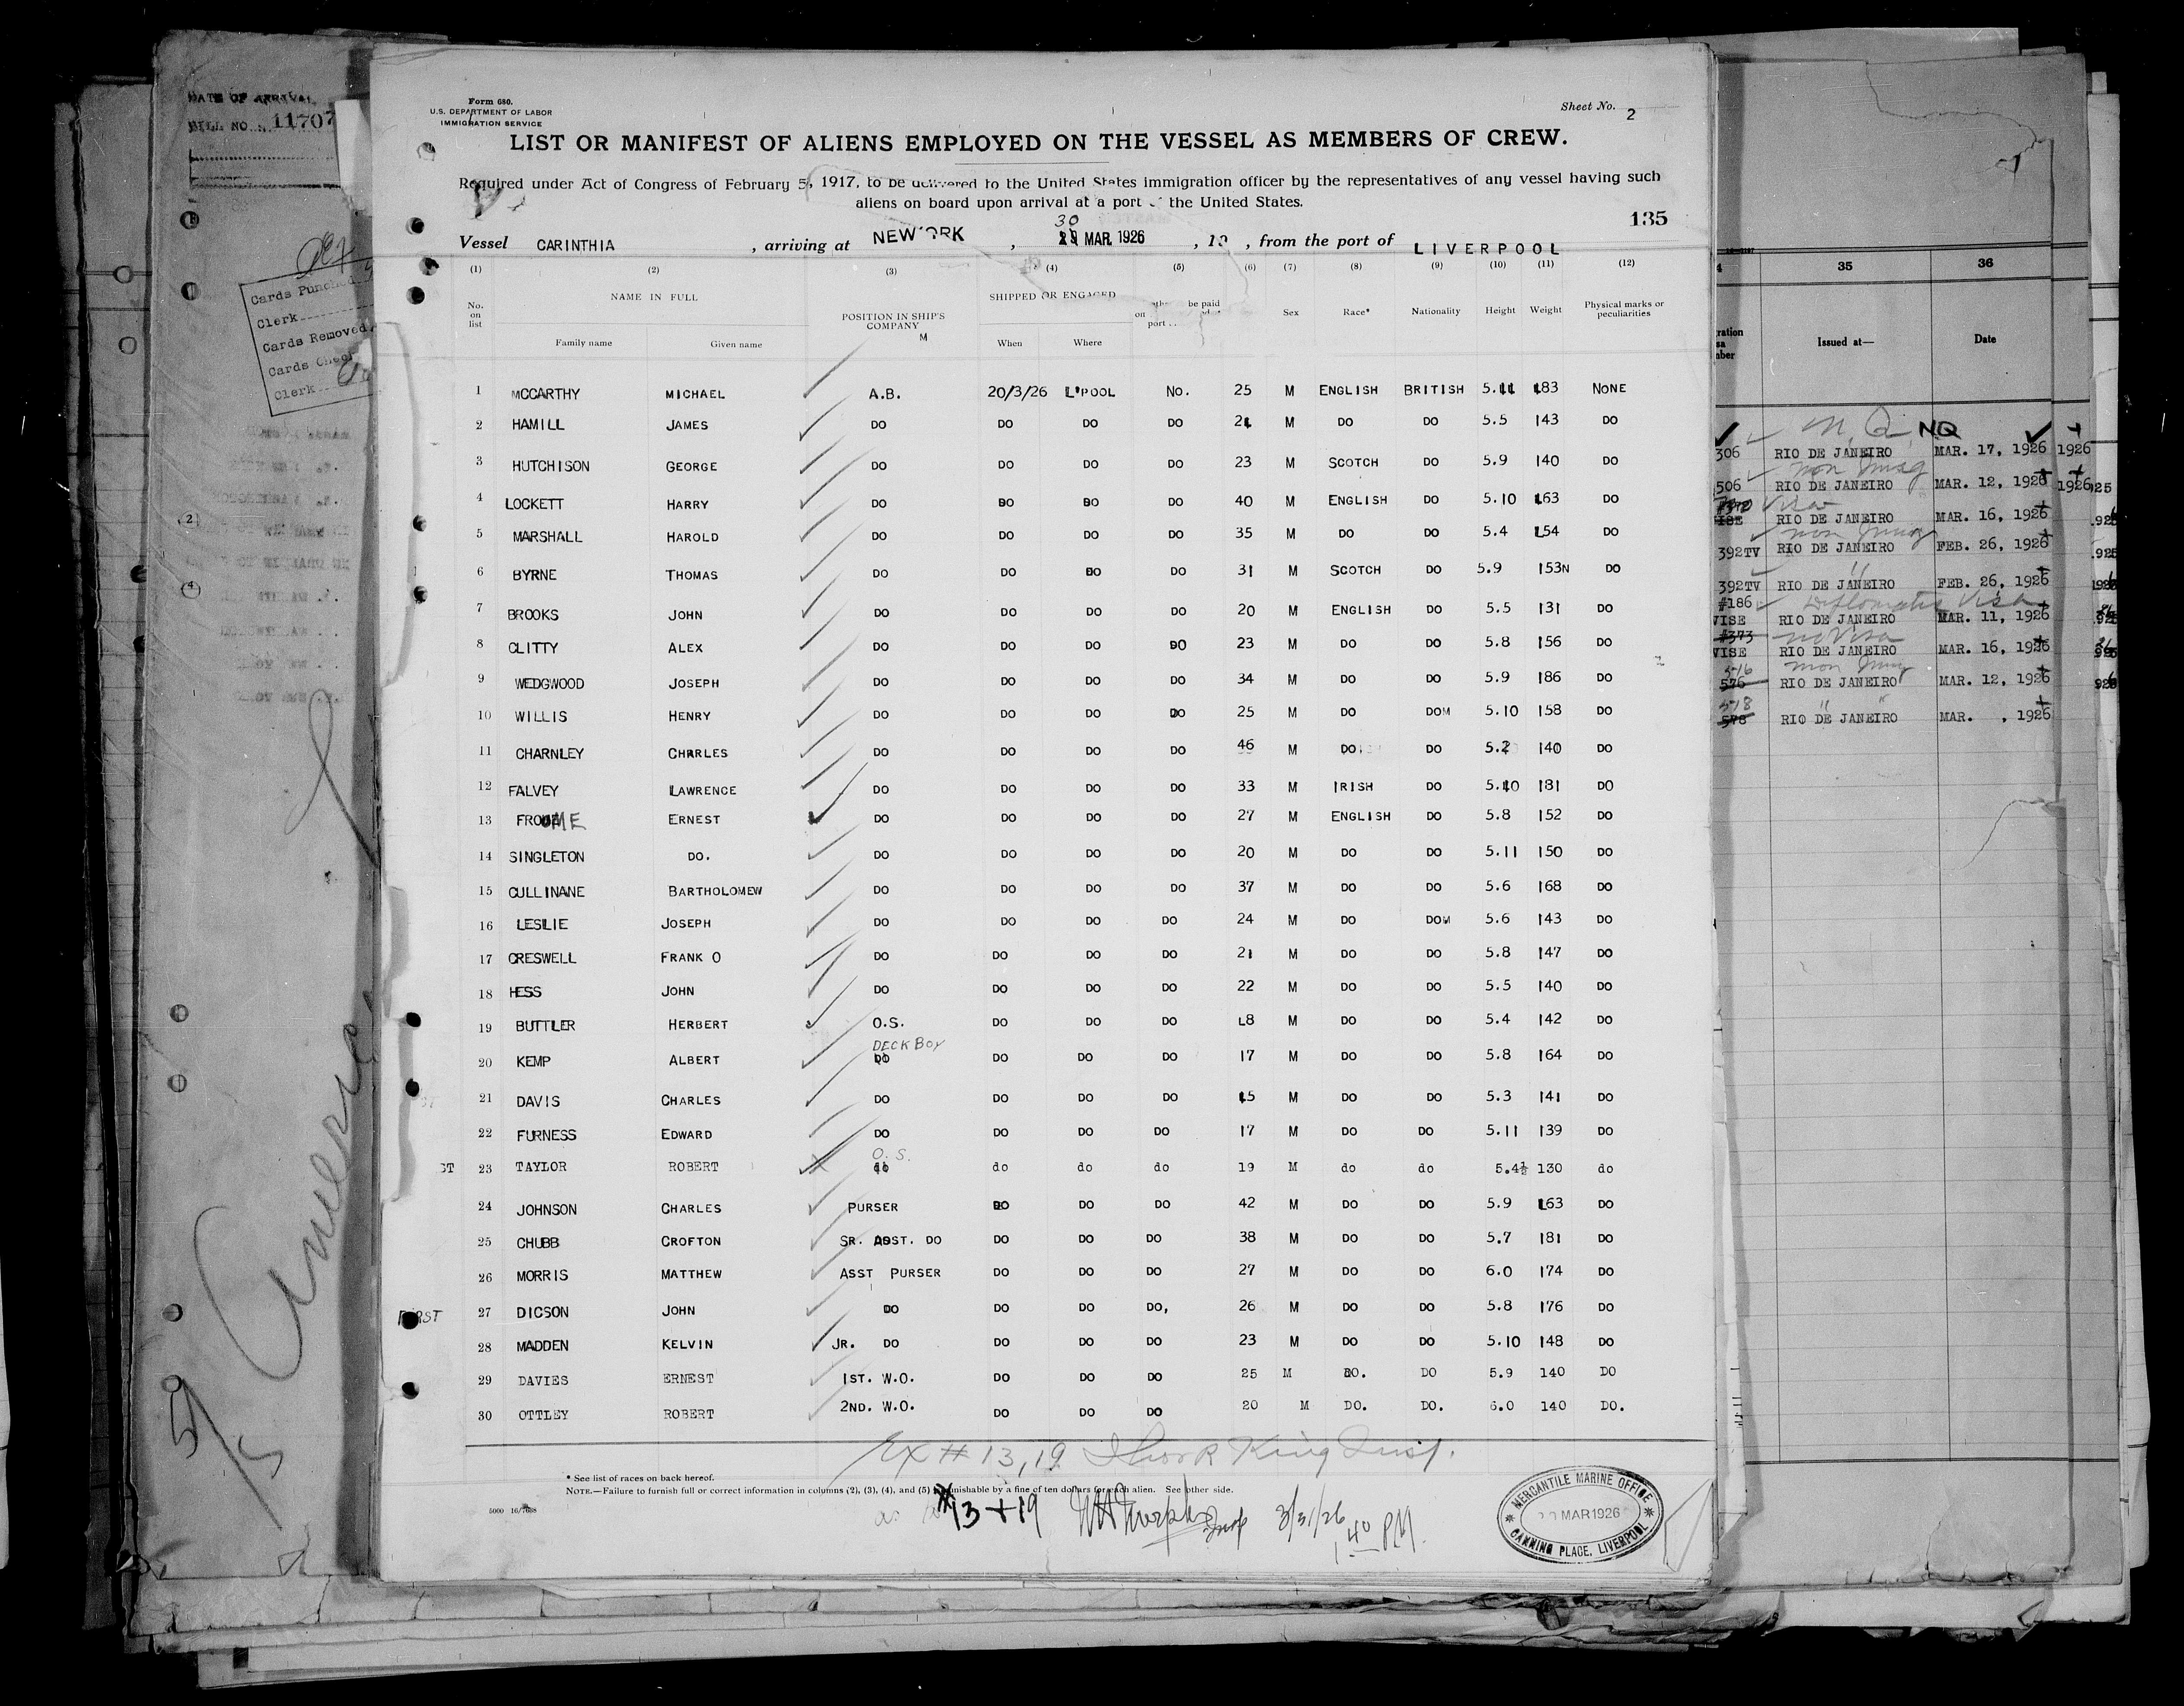 DATE OF ARRIVAL
BILL NO. 11707
Cards Punched
Clerk
Cards Removed
Cards Chec
Clerk
2
4
Form 680.
U.S. DEPARTMENT OF LABOR
IMMIGRATION SERVICE
Sheet No. 2
LIST OR MANIFEST OF ALIENS EMPLOYED ON THE VESSEL AS MEMBERS OF CREW.
Required under Act of Congress of February 5, 1917, to be delivered to the United States immigration officer by the representatives of any vessel having such
aliens on board upon arrival at a port of the United States.
135
30
Vessel CARINTHIA , arriving at NEW YORK , 29 MAR 1926 , 19 , from the port of LIVERPOOL
(1) (2) (3) (4) (5) (6) (7) (8) (9) (10) (11) (12)
No. on list NAME IN FULL Family name Given name POSITION IN SHIP'S COMPANY SHIPPED OR ENGAGED When Where be paid on port Sex Race* Nationality Height Weight Physical marks or peculiarities
M
1 MCCARTHY MICHAEL A.B. 20/3/26 L'POOL No. 25 M ENGLISH BRITISH 5.11 183 NONE
2 HAMILL JAMES DO DO DO DO 21 M DO DO 5.5 143 DO
3 HUTCHISON GEORGE DO DO DO DO 23 M SCOTCH DO 5.9 140 DO
4 LOCKETT HARRY DO DO DO DO 40 M ENGLISH DO 5.10 163 DO
5 MARSHALL HAROLD DO DO DO DO 35 M DO DO 5.4 154 DO
6 BYRNE THOMAS DO DO DO DO 31 M SCOTCH DO 5.9 153N DO
7 BROOKS JOHN DO DO DO DO 20 M ENGLISH DO 5.5 131 DO
8 CLITTY ALEX DO DO DO DO 23 M DO DO 5.8 156 DO
9 WEDGWOOD JOSEPH DO DO DO DO 34 M DO DO 5.9 186 DO
10 WILLIS HENRY DO DO DO DO 25 M DO DOM 5.10 158 DO
11 CHARNLEY CHARLES DO DO DO DO 46 M DO DO 5.2 140 DO
12 FALVEY LAWRENCE DO DO DO DO 33 M IRISH DO 5.10 181 DO
13 FROUME ERNEST DO DO DO DO 27 M ENGLISH DO 5.8 152 DO
14 SINGLETON DO. DO DO DO DO 20 M DO DO 5.11 150 DO
15 CULLINANE BARTHOLOMEW DO DO DO DO 37 M DO DO 5.6 168 DO
16 LESLIE JOSEPH DO DO DO DO 24 M DO DOM 5.6 143 DO
17 CRESWELL FRANK O DO DO DO DO 21 M DO DO 5.8 147 DO
18 HESS JOHN DO DO DO DO 22 M DO DO 5.5 140 DO
19 BUTTLER HERBERT O.S. DO DO DO 18 M DO DO 5.4 142 DO
DECK BOY
20 KEMP ALBERT DO DO DO DO 17 M DO DO 5.8 164 DO
21 DAVIS CHARLES DO DO DO DO 15 M DO DO 5.3 141 DO
22 FURNESS EDWARD DO DO DO DO 17 M DO DO 5.11 139 DO
O.S.
ST 23 TAYLOR ROBERT do do do do 19 M do do 5.4½ 130 do
24 JOHNSON CHARLES PURSER DO DO DO 42 M DO DO 5.9 163 DO
25 CHUBB CROFTON SR. ASST. DO DO DO DO 38 M DO DO 5.7 181 DO
26 MORRIS MATTHEW ASST PURSER DO DO DO 27 M DO DO 6.0 174 DO
FIRST 27 DICSON JOHN DO DO DO DO, 26 M DO DO 5.8 176 DO
28 MADDEN KELVIN JR. DO DO DO DO 23 M DO DO 5.10 148 DO
29 DAVIES ERNEST 1ST. W.O. DO DO DO 25 M DO. DO 5.9 140 DO
30 OTTLEY ROBERT 2ND. W.O. DO DO DO 20 M DO. DO. 6.0 140 DO.
Ex # 13, 19 King Insp.
* See list of races on back hereof.
NOTE.—Failure to furnish full or correct information in columns (2), (3), (4), and (5) is punishable by a fine of ten dollars for each alien. See other side.
#13+19 Murphy Insp 3/31/26 1 40 PM.
MERCANTILE MARINE OFFICE
MAR 1926
CANNING PLACE, LIVERPOOL
35 36
Issued at— Date
N.Q. NQ
306 RIO DE JANEIRO MAR. 17, 1926 1926
non Immg
506 RIO DE JANEIRO MAR. 12, 1926 1926
Visa
RIO DE JANEIRO MAR. 16, 1926
non Immg
392TV RIO DE JANEIRO FEB. 26, 1926
"
392TV RIO DE JANEIRO FEB. 26, 1926
#186 Diplomatic Visa
VISE RIO DE JANEIRO MAR. 11, 1926
#373 no Visa
VISE RIO DE JANEIRO MAR. 16, 1926
516 non Immg
576 RIO DE JANEIRO MAR. 12, 1926
518 " "
578 RIO DE JANEIRO MAR. , 1926